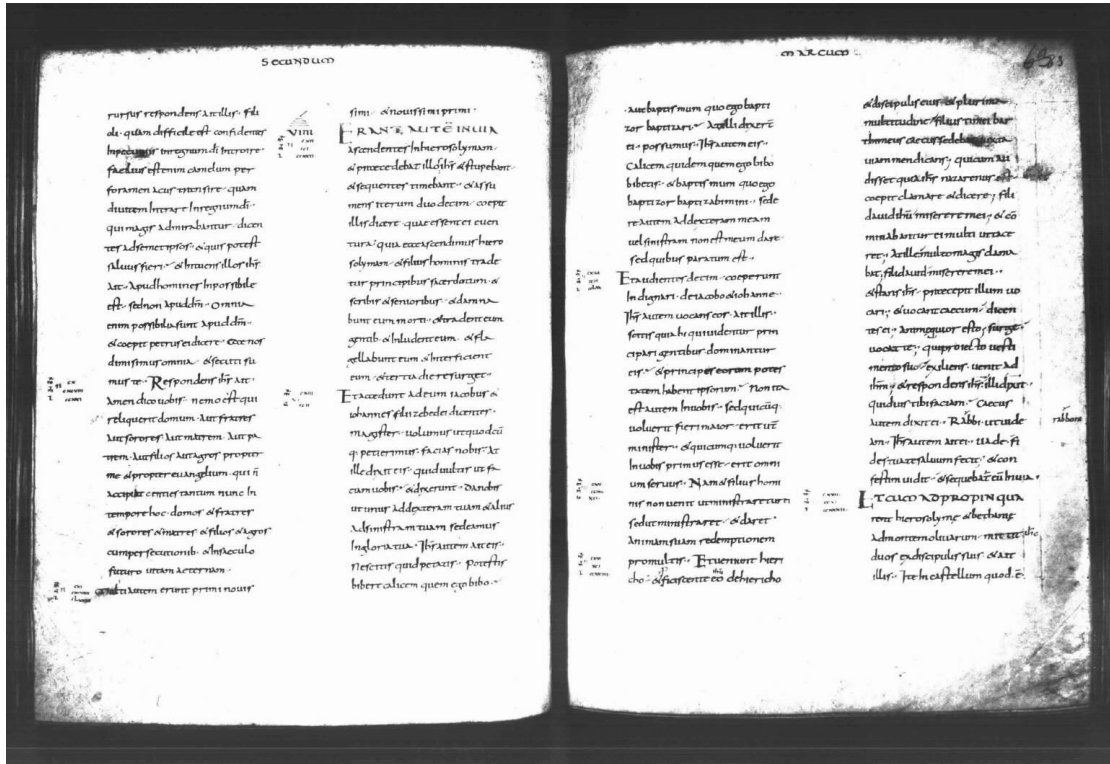 SECUNDUM
rursus respondens ait illis · fili
oli · quam difficile est confidentes
in pecuniis in regnum di introire ·
facilius est enim camelum per
foramen acus transire · quam
diuitem intrare in regnum di ·
qui magis admirabantur · dicen
tes ad semet ipsos · & quis potest
saluus fieri · & intuens illos ihs
ait · apud homines inpossibile
est · sed non apud dm · Omnia
enim possibilia sunt apud dm ·
& coepit petrus ei dicere · Ecce nos
dimisimus omnia · & secuti su
mus te · Respondens ihs ait ·
Amen dico uobis · nemo est qui
reliquerit domum · aut fratres
aut sorores aut matrem · aut pa
trem · aut filios aut agros propter
me & propter euangelium · qui n
accipiat centies tantum nunc in
tempore hoc · domos & fratres
& sorores & matres & filios & agros
cum persecutionib · & in saeculo
futuro uitam aeternam ·
multi autem erunt primi nouis
simi · & nouissimi primi ·
ERANT AUTE IN UIA
ascendentes in hierosolymam ·
& praecedebat illos ihs & stupebant ·
& sequentes timebant · & assu
mens iterum duodecim · coepit
illis dicere quae essent ei euen
tura · quia ecce ascendimus hiero
solymam · & filius hominis trade
tur principibus sacerdotum &
scribis & senioribus · & damna
bunt eum morti · & tradent eum
gentib · & inludent eum · & fla
gellabunt eum & interficient
eum · & tertia die resurget ·
Et accedunt ad eum iacobus &
iohannes filii zebedei dicentes ·
magister · uolumus ut quodcu
q · petierimus · facias nobis · at
ille dixit eis · quid uultis ut fa
ciam uobis · & dixerunt · Da nobis
ut unus ad dexteram tuam & alius
ad sinistram tuam sedeamus
in gloria tua · Ihs autem ait eis ·
nescitis quid petatis · potestis
bibere calicem quem ego bibo ·
MARCUM
83
aut baptismum quo ego bapti
zor baptizari · At illi dixert
ei · possumus · Ihs autem eis ·
Calicem quidem quem ego bibo
bibetis · & baptismum quo ego
baptizor baptizabimini · sede
re autem ad dexteram meam
uel sinistram non est meum dare
sed quibus paratum est ·
Et audientes decim · coeperunt
indignari · de iacobo & iohanne ·
Ihs autem uocans eos ait illis ·
scitis quia hi qui uidentur prin
cipari gentibus dominantur
eis · & principes eorum potes
tatem habent ipsorum · Non ita
est autem in uobis · sed quicuq
uoluerit fieri maior · erit ur
minister · & quicumq uoluerit
in uobis primus esse · erit omni
um seruus · Nam & filius homi
nis non uenit ut ministraretur ti
sed ut ministraret · & daret ·
animam suam redemptionem
pro multis · Et ueniunt hieri
cho · & proficiscente eo de hiericho
& discipulis eius · & plurima
multitudine · filius timei bar
thimeus caecus sedebat iuxta
uiam mendicans · qui cum au
disset quia ihs nazarenus est
coepit clamare & dicere · fili
dauid ihu miserere mei · & co
minabantur ei multi ut tace
ret · At ille multo magis clama
bat · fili dauid miserere mei ·
& stans ihs · praecepit illum uo
cari · & uocant caecum · dicen
tes ei · animequior esto · surge ·
uocat te · qui proiecto uesti
mento suo · exiliens · uenit ad
ihm · & respondens ihs illi dixit
quid uis tibi faciam · Caecus
autem dixit ei · Rabbi · ut uide
am · Ihs autem ait ei · uade · fi
des tua te saluum fecit · & con
festim uidit · & sequebatur eu in uia ·
rabboni
ET CUM ADPROPINQUA
rent hierosolyme & bethaniae
ad montem oliuarum · mittit
duos ex discipulis suis · & ait
illis · Ite in castellum quod · e ·